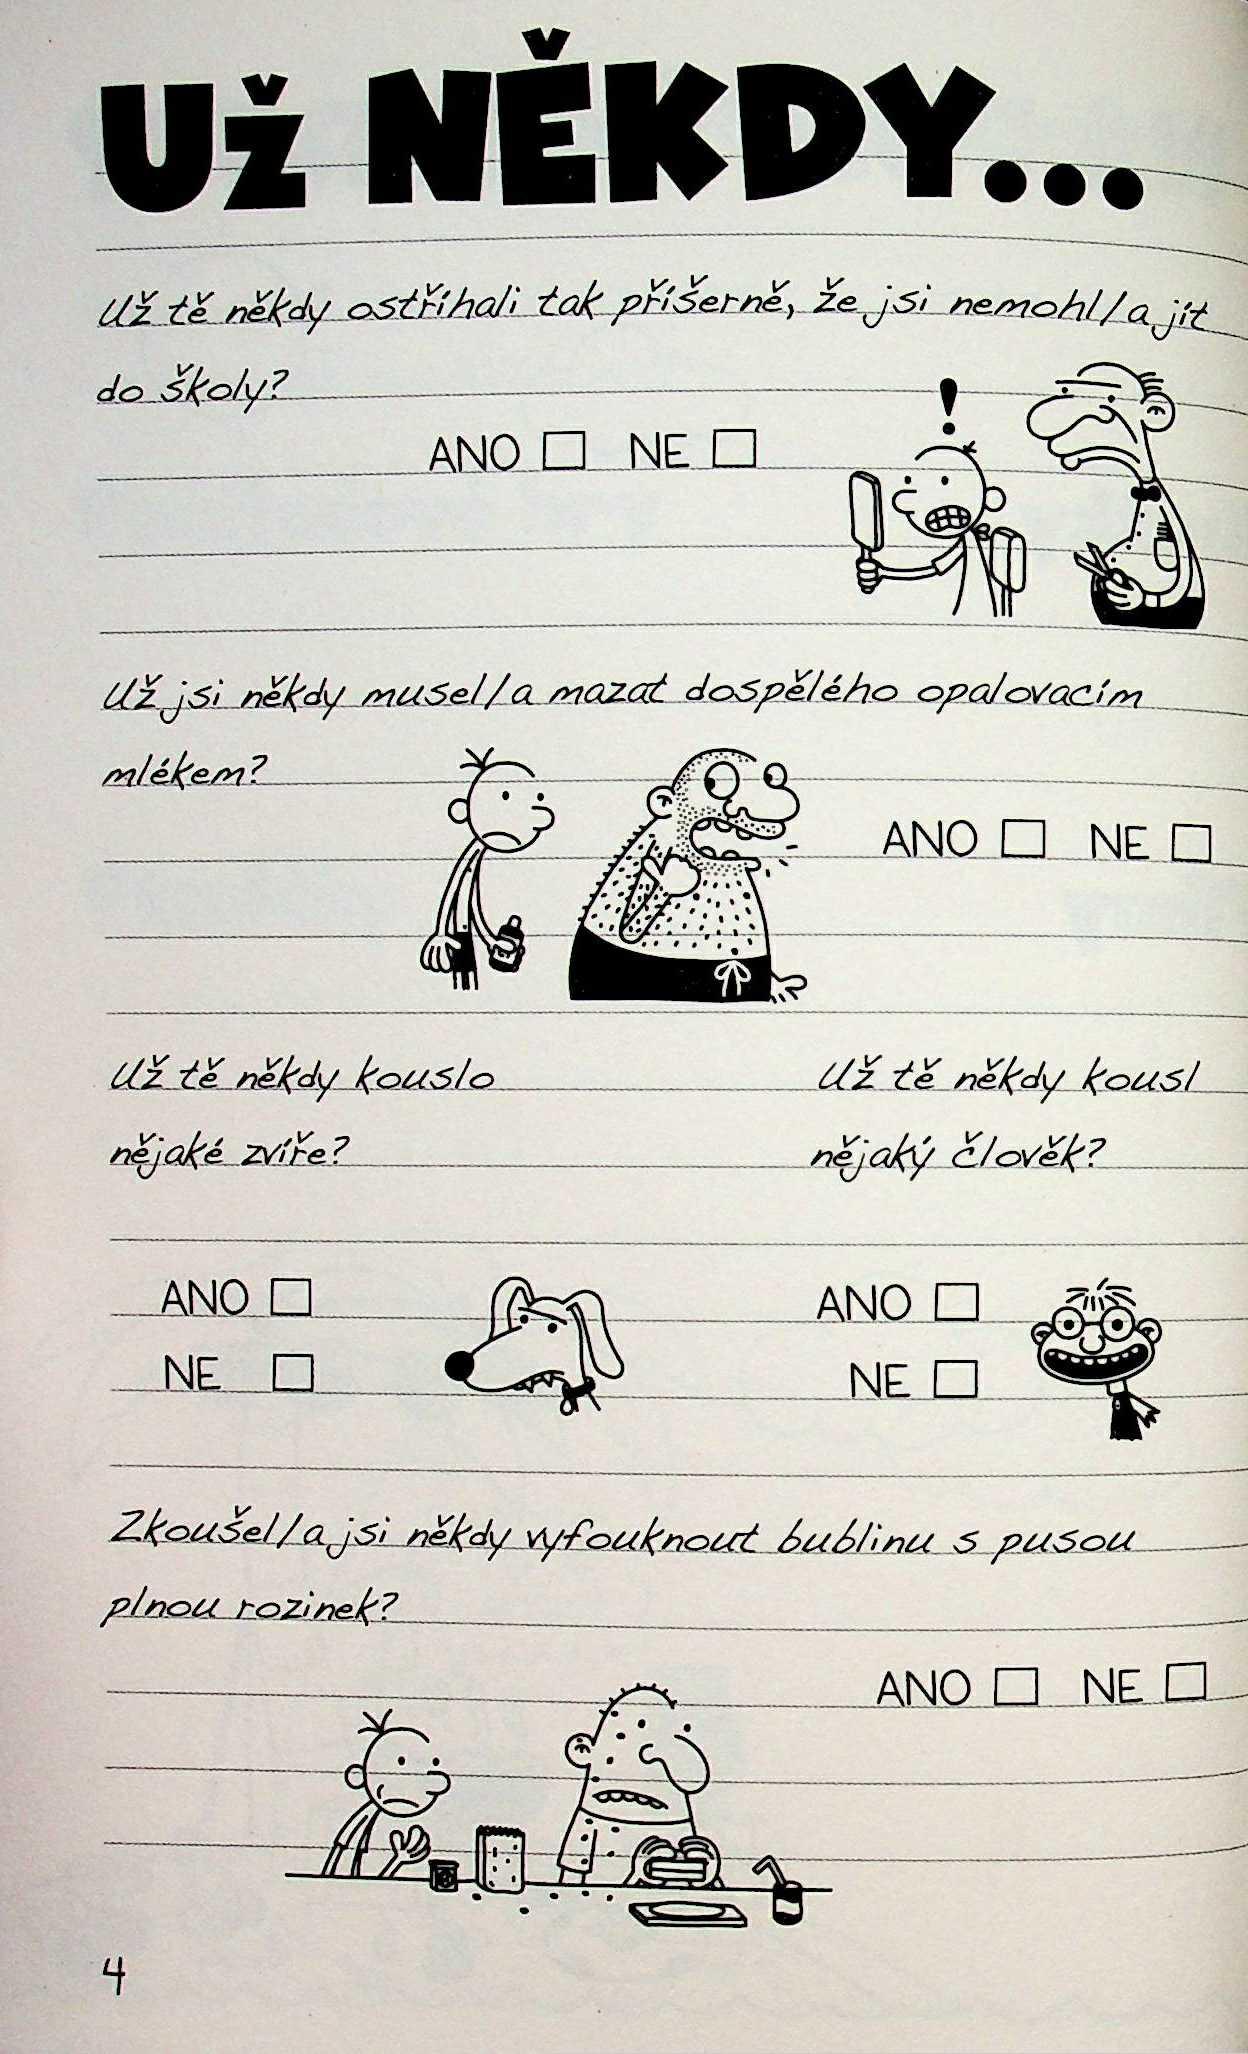 Už NĚKDY...
Už tě někdy ostříhali tak příšerně, že jsi nemohl/a jít
do školy?
ANO □ NE □
!
Už jsi někdy musel/a mazat dospělého opalovacím
mlékem?
ANO □ NE □
Už tě někdy kouslo
nějaké zvíře?
ANO □
NE □
Už tě někdy kousl
nějaký člověk?
ANO □
NE □
Zkoušel/a jsi někdy vyfouknout bublinu s pusou
plnou rozinek?
ANO □ NE □
4